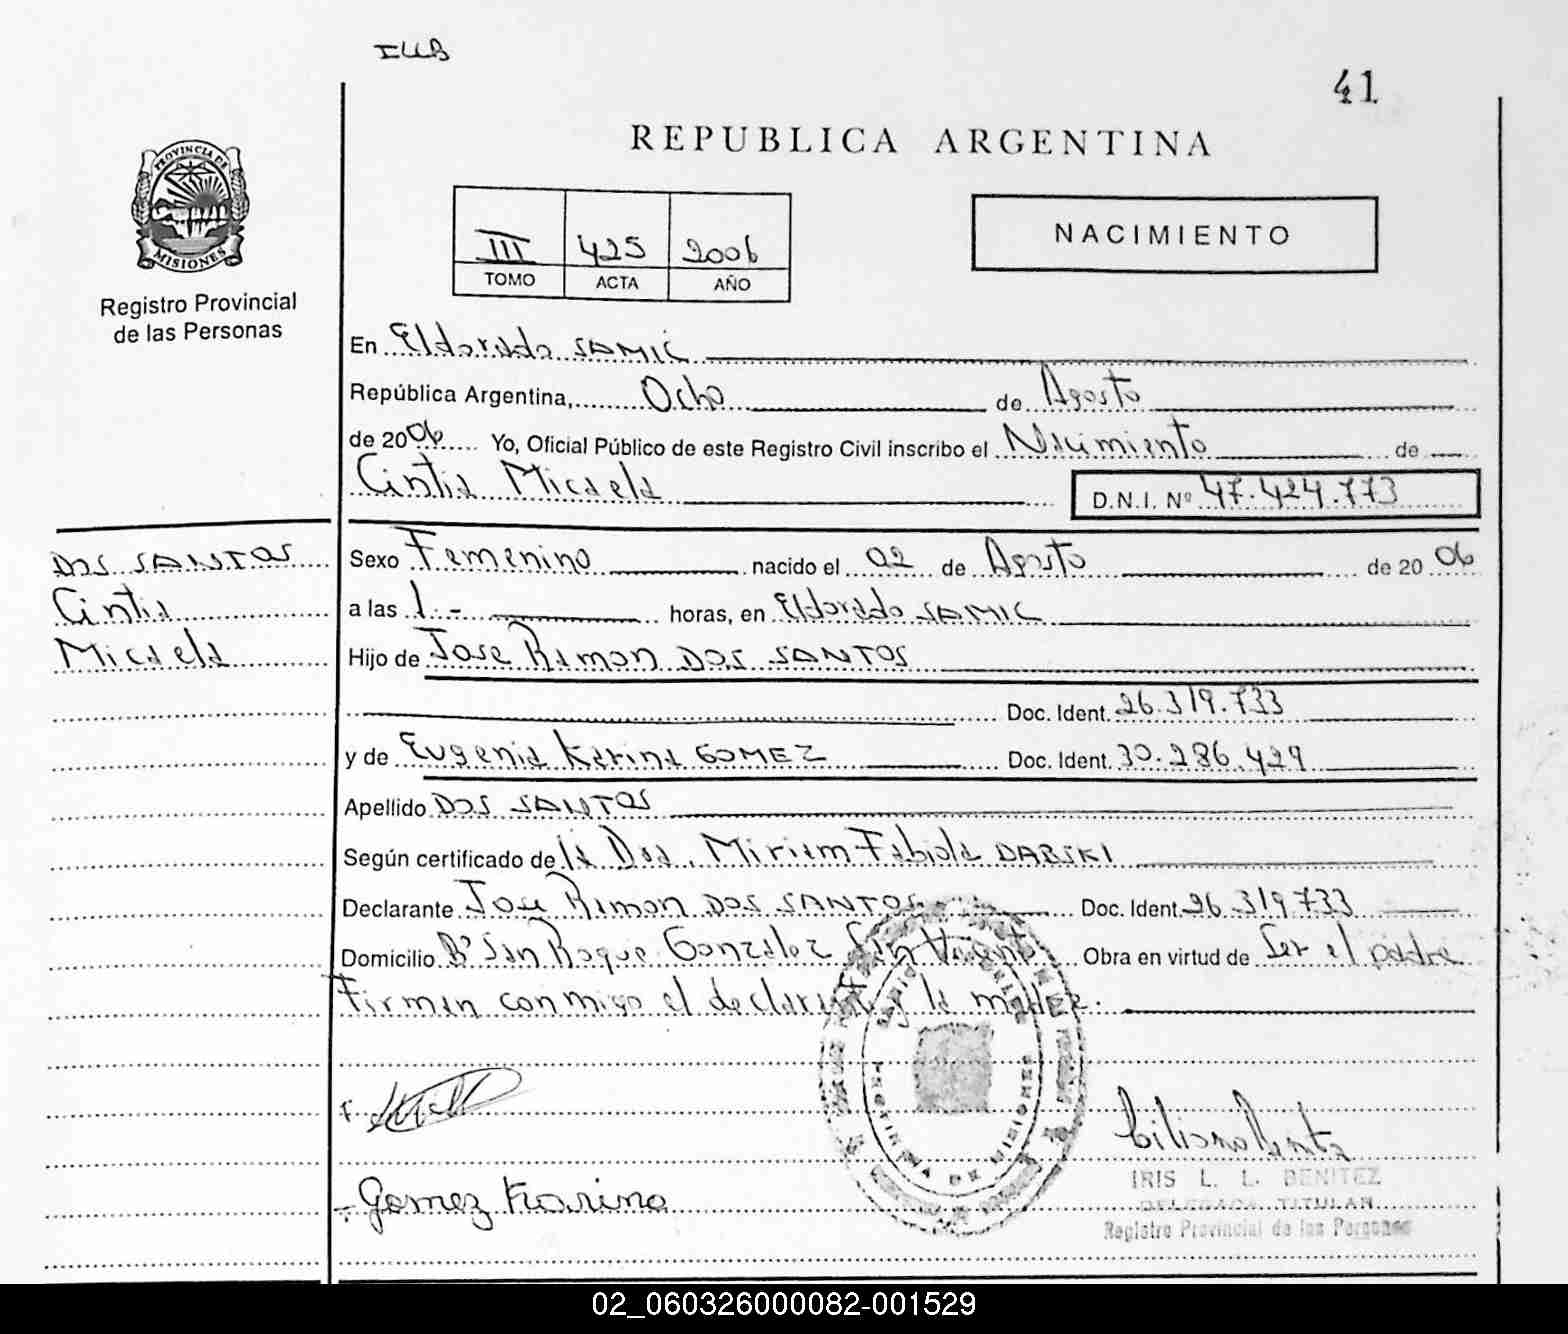 ILLB
41
REPUBLICA ARGENTINA
PROVINCIA DE
MISIONES
Registro Provincial
de las Personas
III 425 2006
TOMO ACTA AÑO
NACIMIENTO
En Eldorado SAMIC
República Argentina, Ocho de Agosto
de 2006 Yo, Oficial Público de este Registro Civil inscribo el Nacimiento de
Cintia Micaela D.N.I. Nº 47.424.773
DOS SANTOS
Cintia
Micaela
Sexo Femenino nacido el 02 de Agosto de 2006
a las 1.- horas, en Eldorado SAMIC
Hijo de Jose Ramon DOS SANTOS
Doc. Ident. 26.319.733
y de Eugenia Karina GOMEZ Doc. Ident. 30.286.429
Apellido DOS SANTOS
Según certificado de la Dra. Miriam Fabiola DARSKI
Declarante Jose Ramon DOS SANTOS Doc. Ident. 26.319.733
Domicilio Bº San Roque Gonzalez San Vicente Obra en virtud de Ser el padre
Firman conmigo el declarante y la madre.
PROVINCIA DE MISIONES
Gomez Karina
IRIS L. L. BENITEZ
DELEGADA TITULAR
Registro Provincial de las Personas
02_060326000082-001529